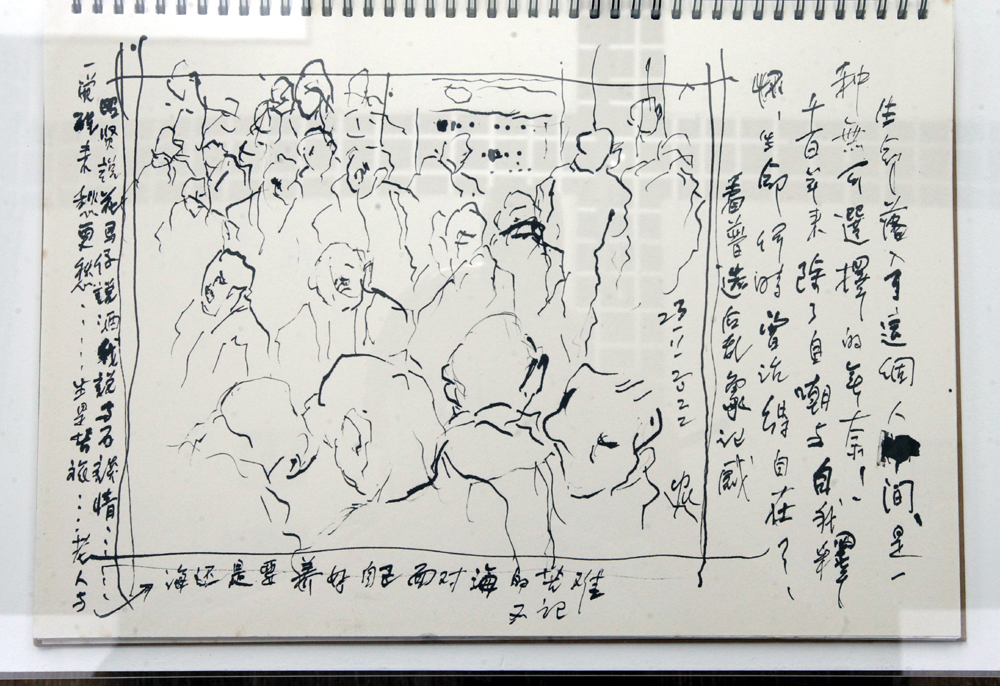 生命落入了這個人間、是一
种無可選擇的無奈！
千百年来除了自嘲与自我釋
懷、生命何時曾活得自在？
看普选后乱象记感
23 11 2022
昭贤說花马仔說酒我說 情……
一覚醒来愁更愁……生是苦旅…老人与
海还是要养好自己面对海的苦难
又记